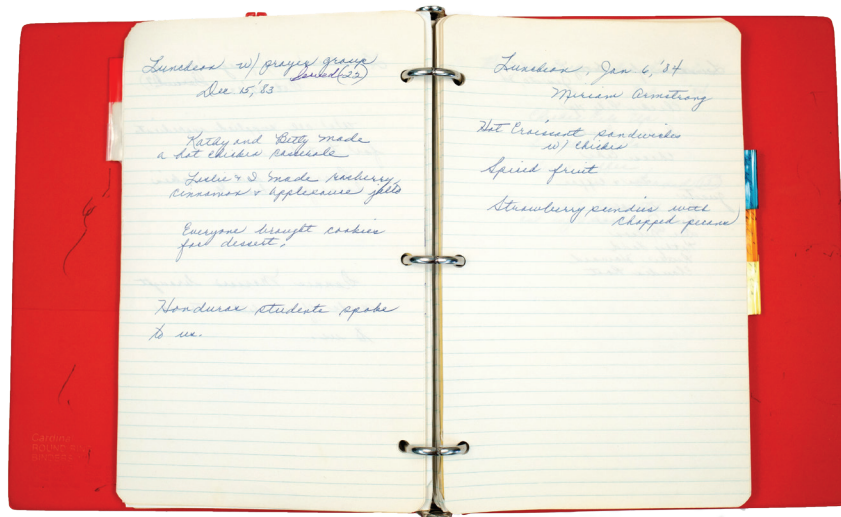 Luncheon w/ prayer group
Served (22)
Dec 15, '83
Kathy and Betty made
a hot chicken casserole
Leslie & I made rasberry
cinnamon & applesauce jello
Everyone brought cookies
for dessert.
Honduras students spoke
to us.
Luncheon, Jan 6, '84
Miriam Armstrong
Hot Croissant sandwiches
w/ chicken
Spiced fruit
Strawberry sundies with
chopped pecans
Cardinal
ROUND R
BINDER